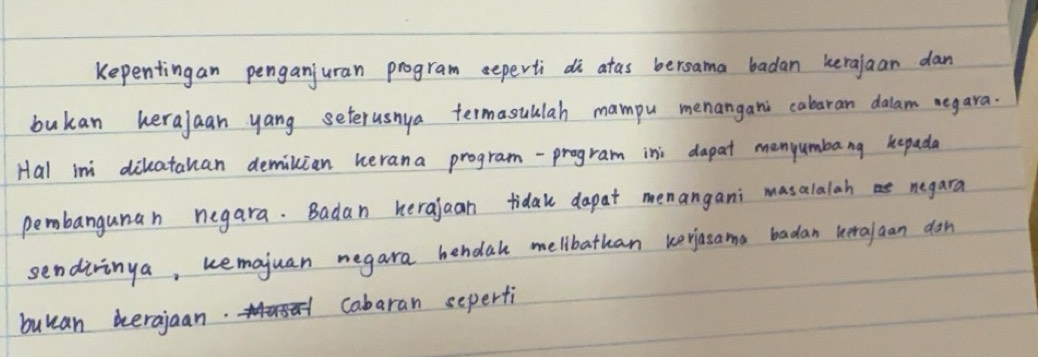 Kepentingan penganjuran program seperti di atas bersama badan kerajaan dan
bukan kerajaan yang seterusnya termasuklah mampu menangani cabaran dalam negara.
Hal ini dikatakan demikian kerana program-program ini dapat menyumbang kepada
pembangunan negara. Badan kerajaan tidak dapat menangani masalalah negara
sendirinya, kemajuan negara hendak melibatkan kerjasama badan kerajaan dan
bukan kerajaan. Cabaran seperti